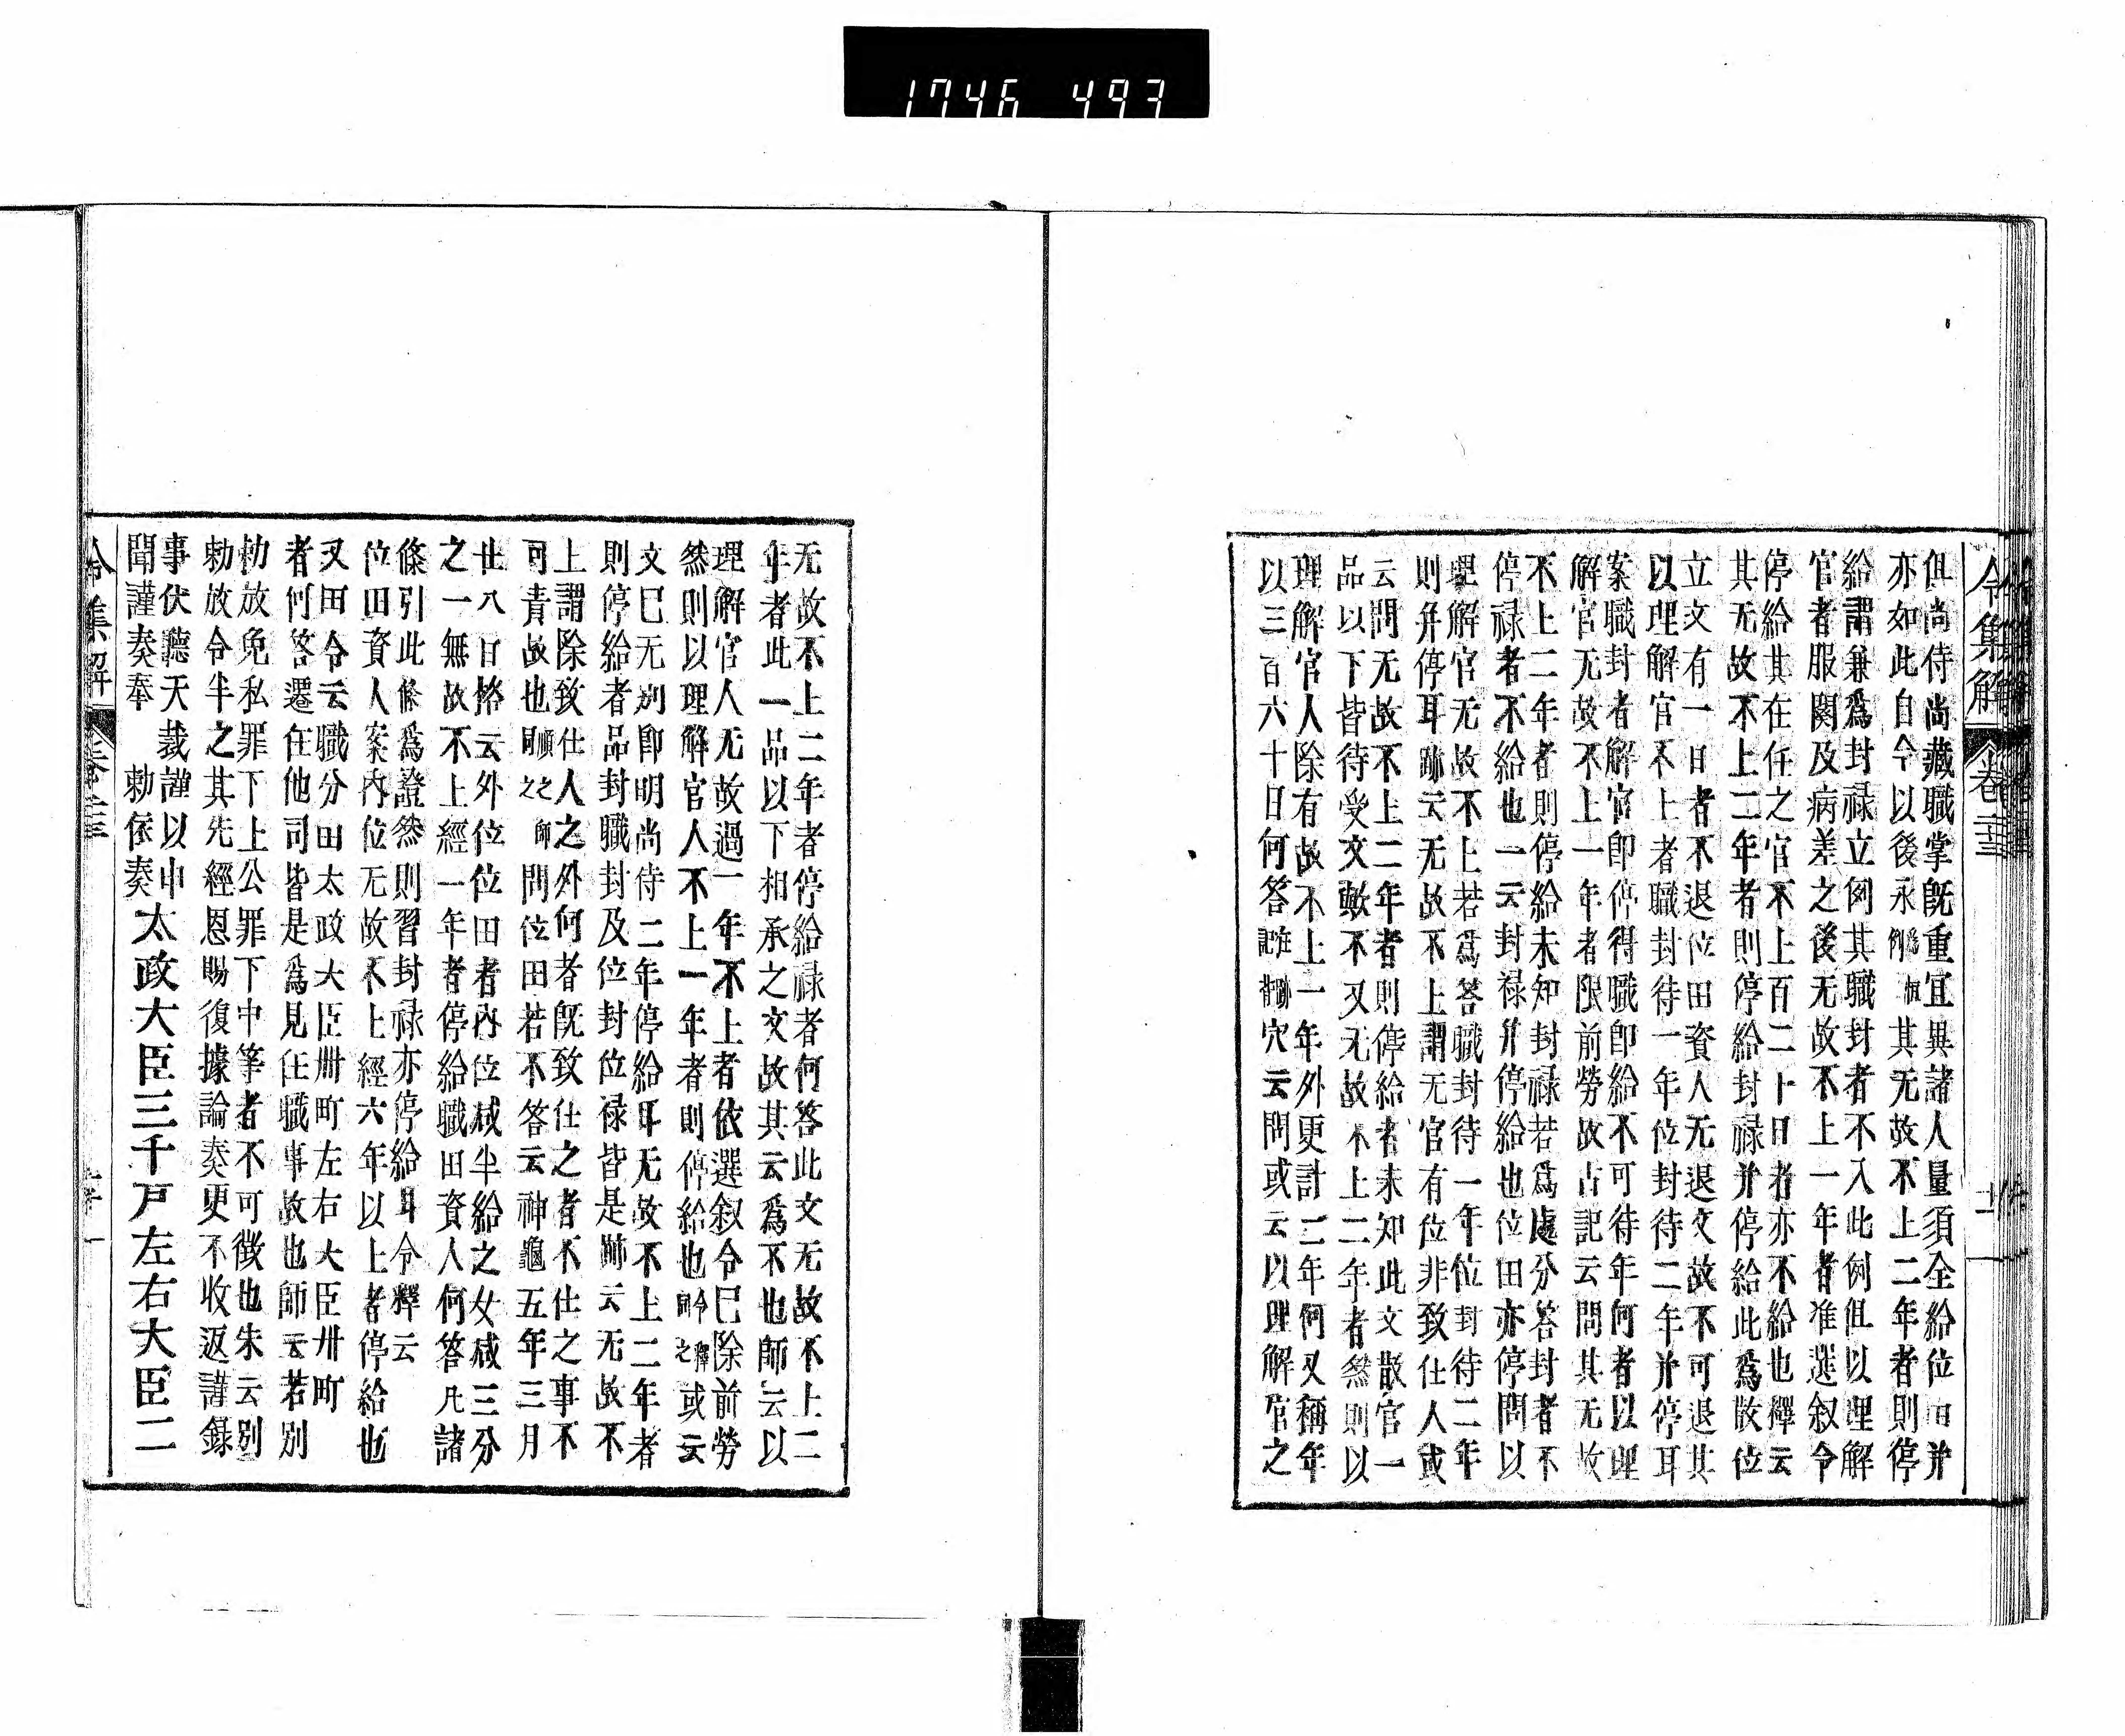 1746 493
令集解 卷二十三
但尚侍尚藏職掌既重宜異諸人量須全給位田并
亦如此自今以後永爲恒例其无故不上二年者則停
給謂兼爲封禄立例其職封者不入此例但以理解
官者服闋及病差之後无故不上一年者准選叙令
停給其在任之官不上百二十日者亦不給也釋云
其无故不上二年者則停給封禄并停給此爲散位
立文有一日者不退位田資人无退文故不可退其
以理解官不上者職封待一年位封待二年并停耳
案職封者解官即停得職即給不可待年何者以理
解官无故不上一年者限前勞故古記云問其无故
不上二年者則停給未知封禄若爲處分答封者不
停禄者不給也一云封禄并停給也位田亦停問以
理解官无故不上若爲答職封待一年位封待二年
則并停耳跡云无故不上謂无官有位非致仕人或
云問无故不上二年者則停給者未知此文散官一
品以下皆待受文歟不又无故不上二年者然則以
理解官人除有故不上一年外更計二年何又稱年
以三百六十日何答穴云問或云以理解官之
无故不上二年者停給禄者何答此文无故不上二
年者此一品以下相承之文故其云爲不也師云以
理解官人无故過一年不上者依選叙令已除前勞
然則以理解官人不上一年者則停給也令釋同之或云
文已无別即明尚侍二年停給耳无故不上二年者
則停給者品封職封及位封位禄皆是跡云无故不
上謂除致仕人之外何者既致仕之者不仕之事不
可責故也師同之問位田若不答云神龜五年三月
廿八日格云外位位田者內位减半給之女减三分
之一無故不上經一年者停給職田資人何答凡諸
條引此條爲證然則習封禄亦停給耳令釋云
位田資人案內位无故不上經六年以上者停給也
又田令云職分田太政大臣卌町左右大臣卅町
者何答遷任他司皆是爲見任職事故也師云若別
勅放免私罪下上公罪下中等者不可徵也朱云別
勅放令半之其先經恩賜復據論奏更不收返謹録
事伏聽天裁謹以申
聞謹奏奉 勅依奏
太政大臣三千戸左右大臣二
令集解 卷二十三